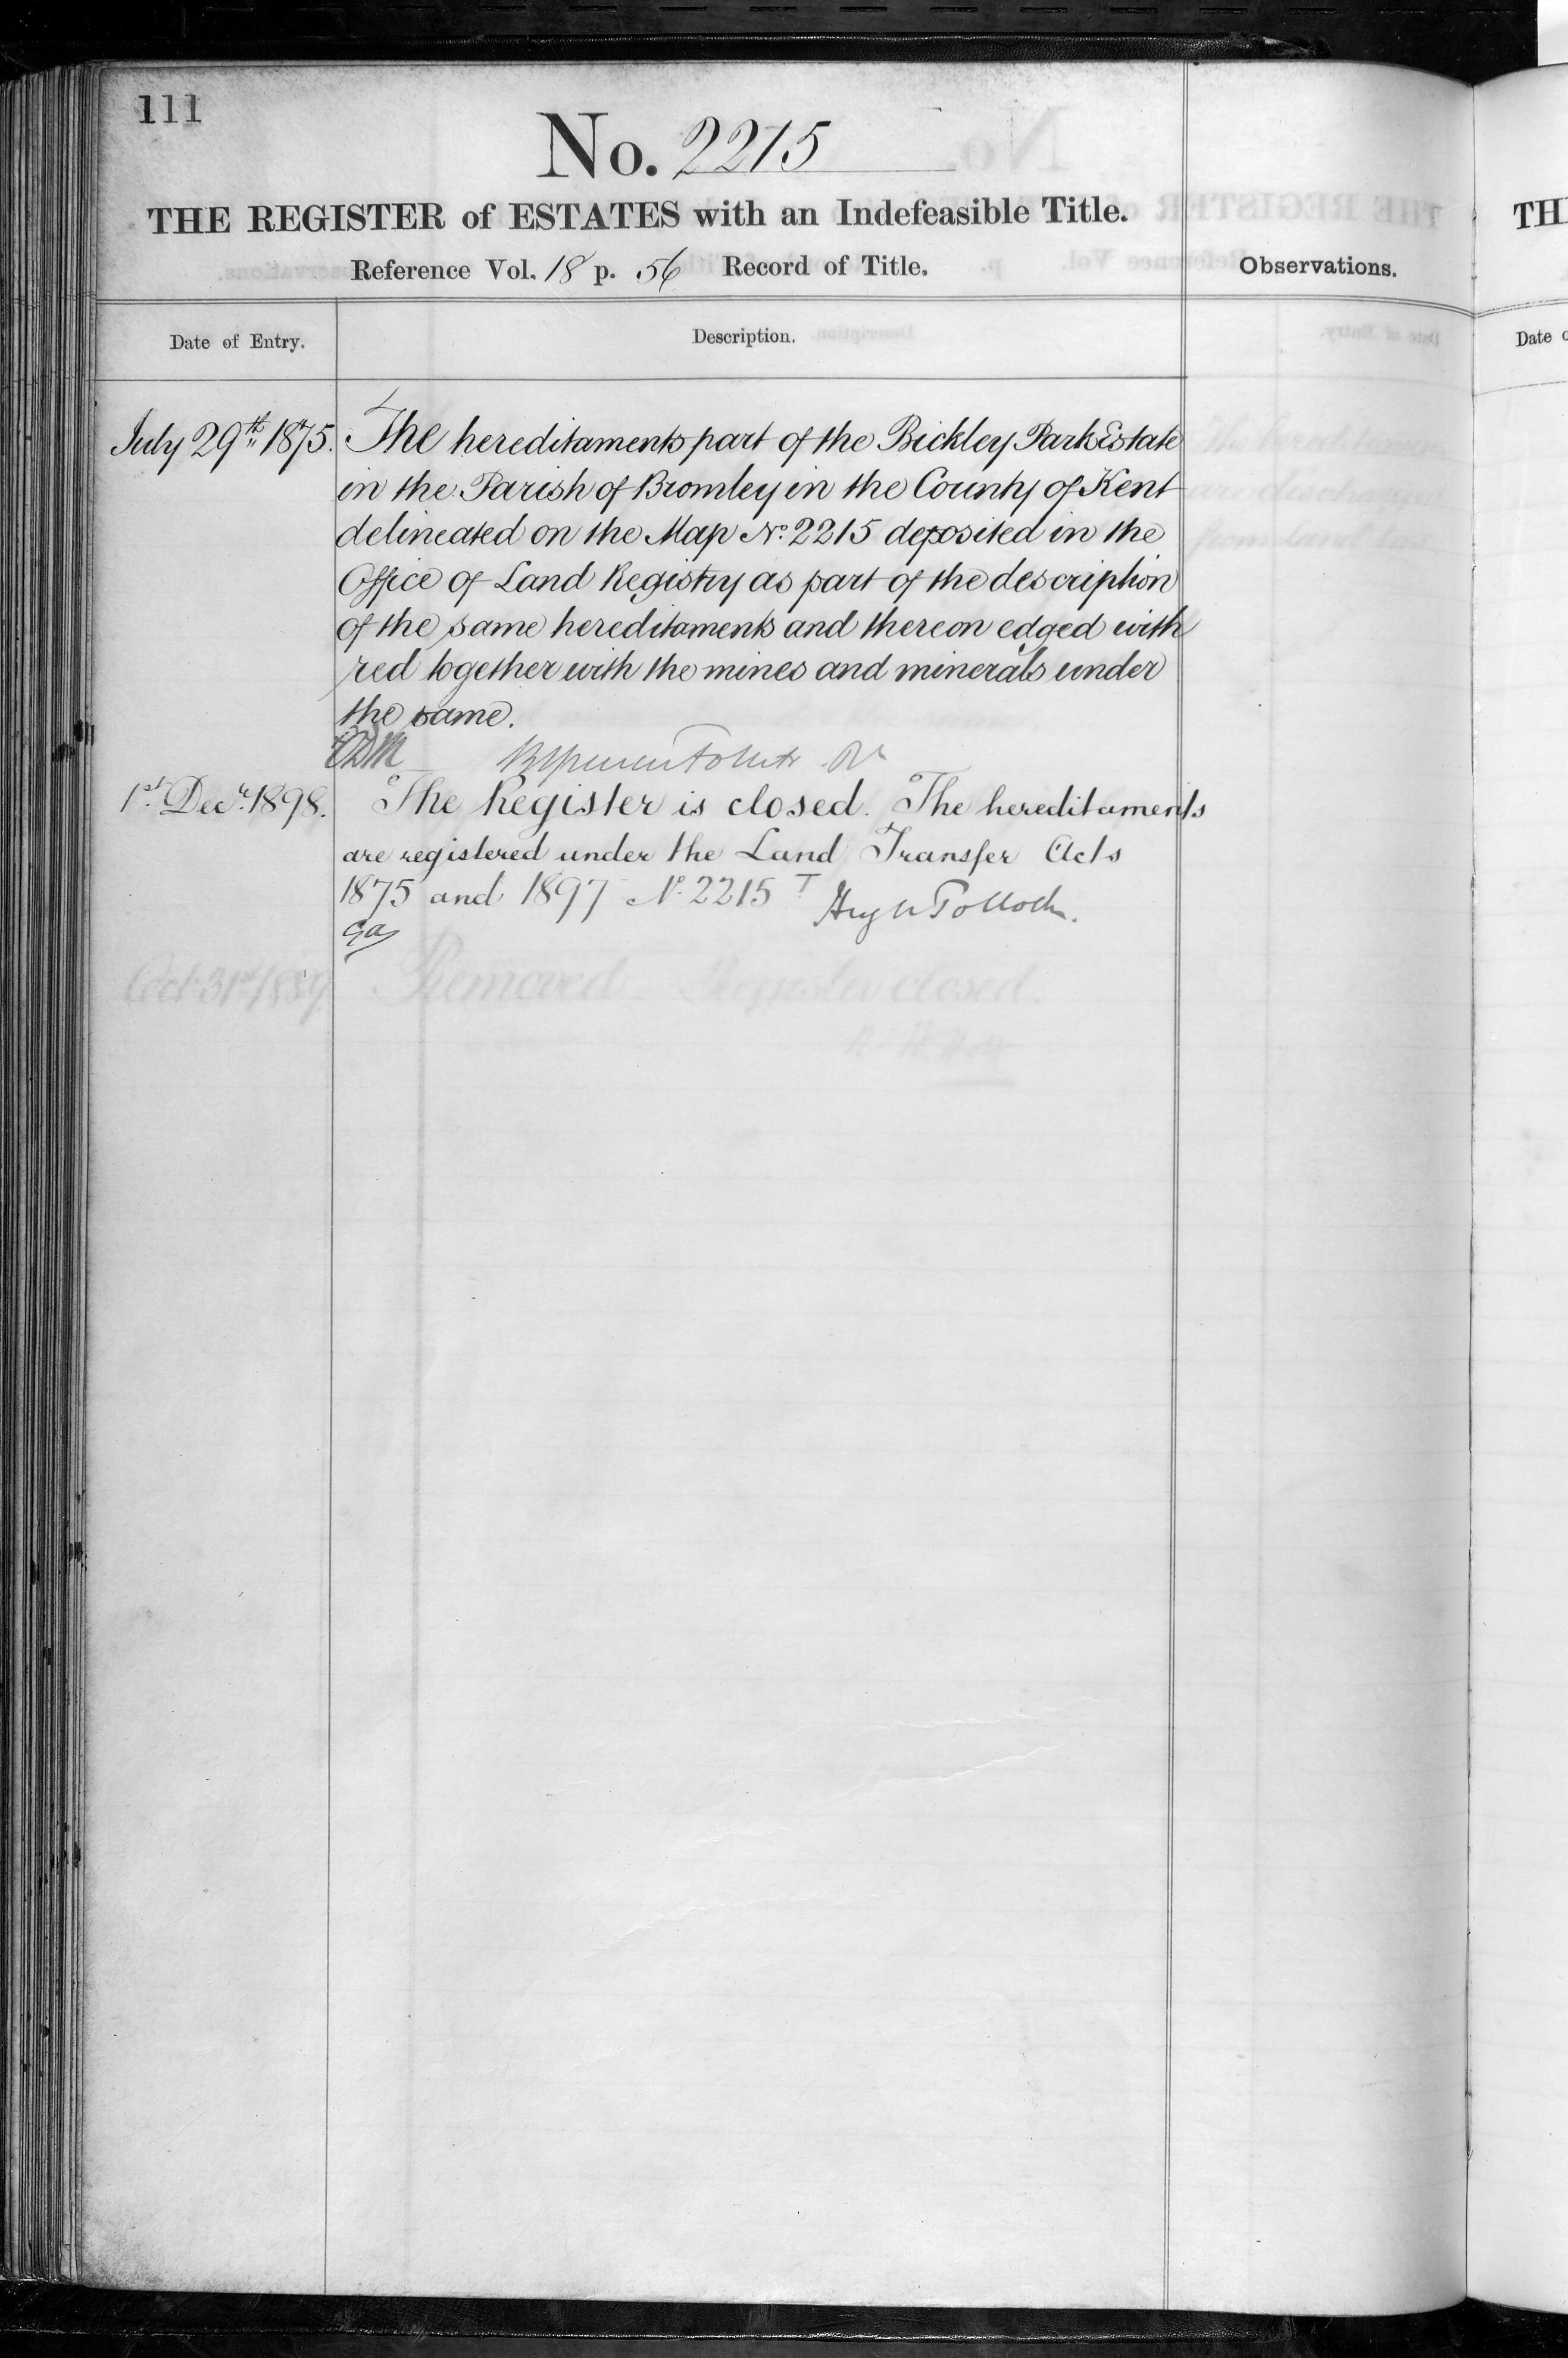 111
No. 2215
THE REGISTER of ESTATES with an Indefeasible Title.
Reference Vol. 18 p. 56 Record of Title.
Observations.
Date of Entry.
Description.
July 29th 1875.
The hereditaments part of the Bickley Park Estate
in the Parish of Bromley in the County of Kent
delineated on the Map No. 2215 deposited in the
Office of Land Registry as part of the description
of the same hereditaments and thereon edged with
red together with the mines and minerals under
the same.
1st Decr. 1898.
The Register is closed. The hereditaments
are registered under the Land Transfer Acts
1875 and 1897 No. 2215 T Hugh Pollock.
Octr 31st 1889
Removed Register closed.
TH
Date o